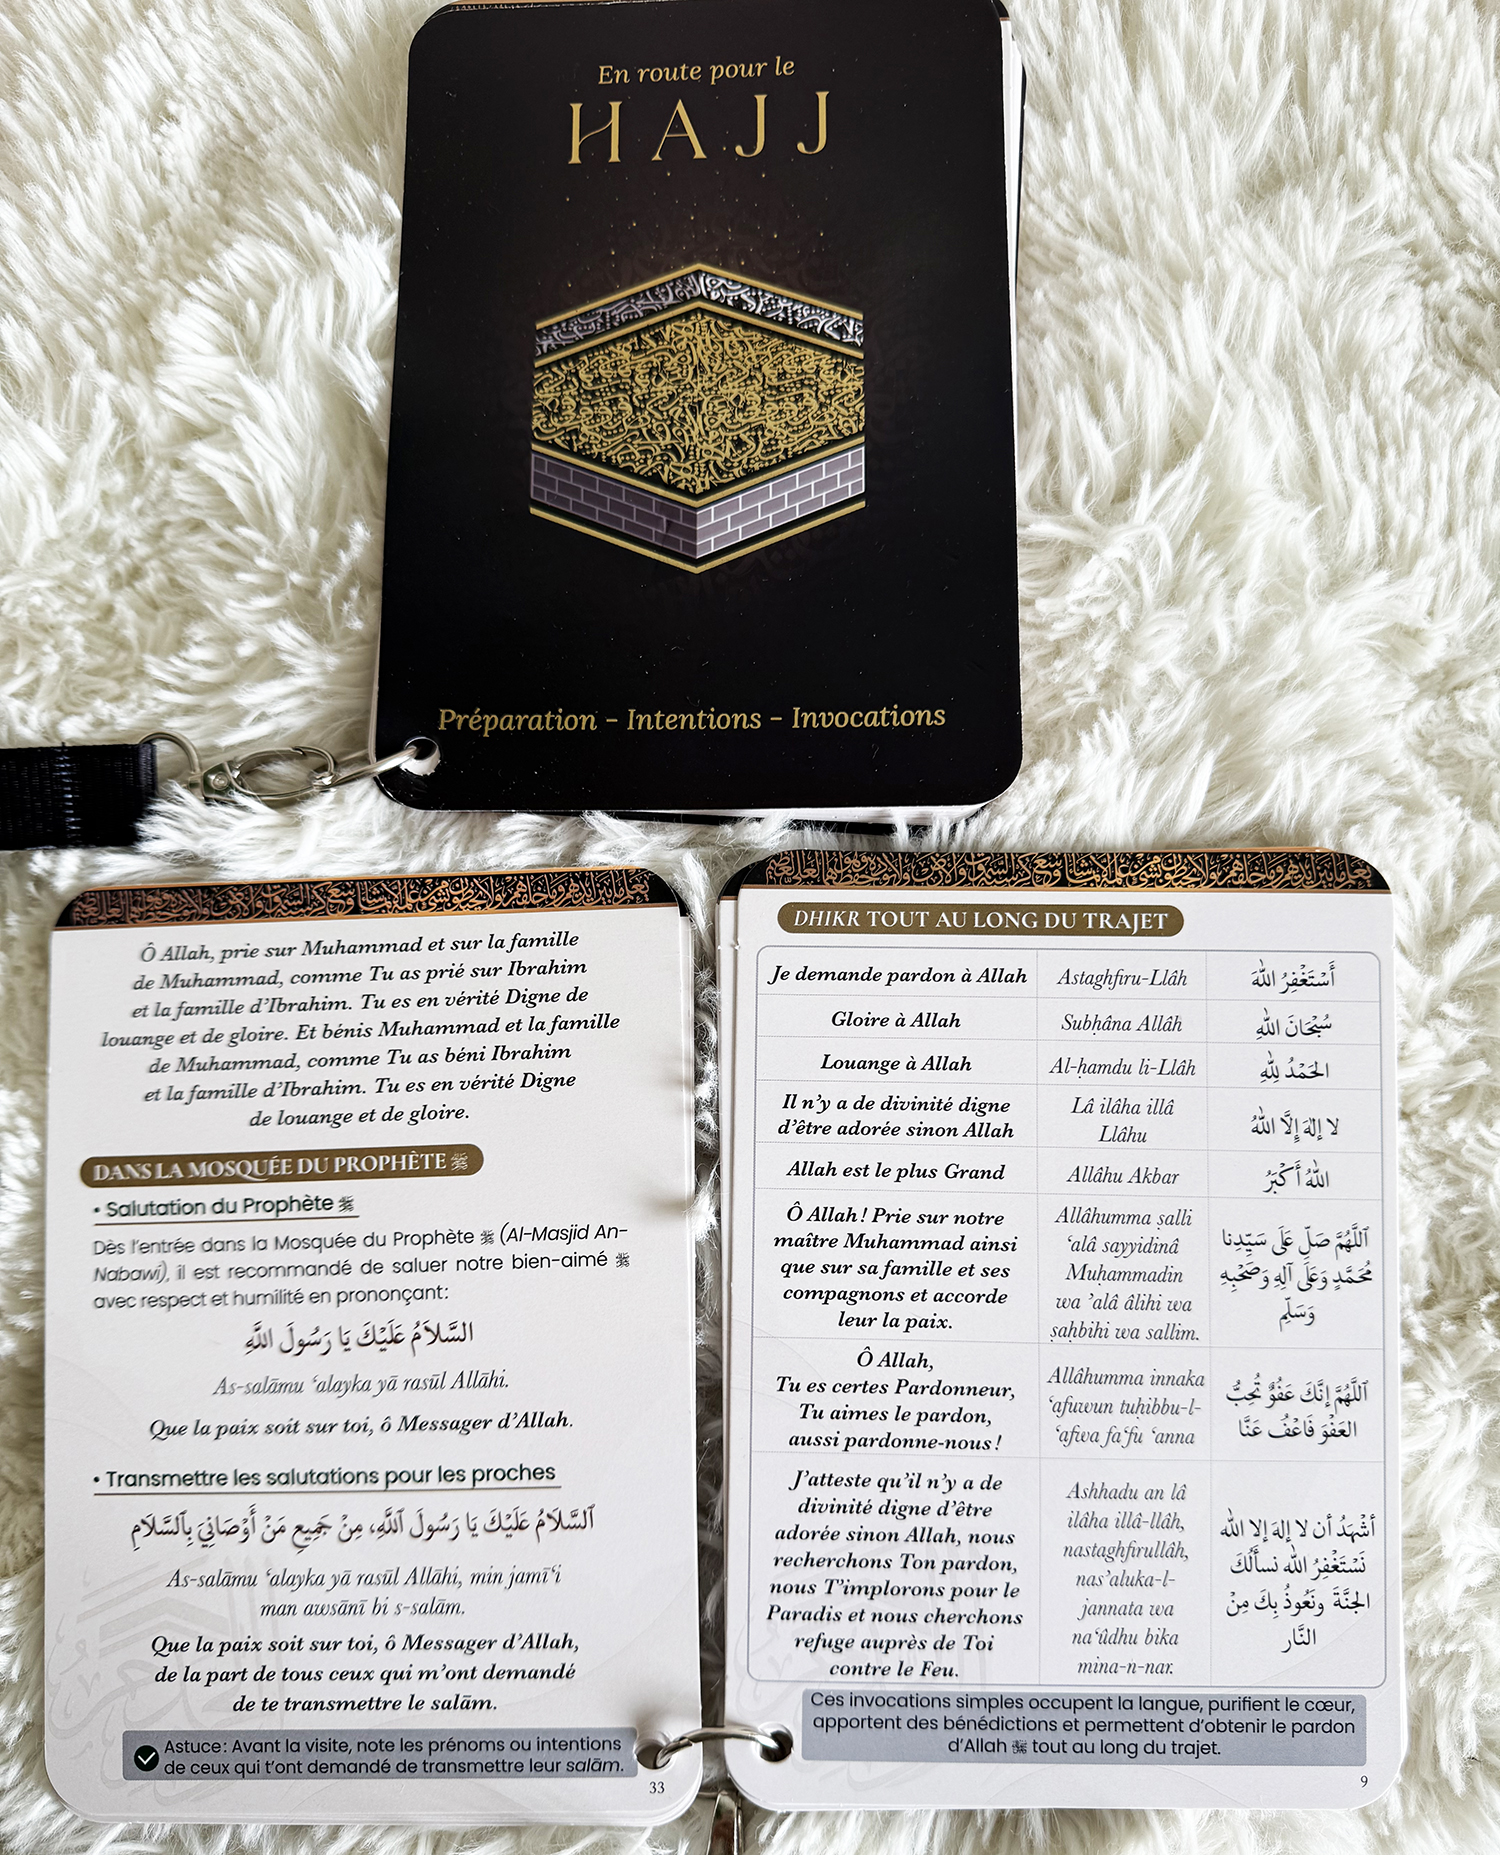 En route pour le
HAJJ
Préparation - Intentions - Invocations
Ô Allah, prie sur Muhammad et sur la famille
de Muhammad, comme Tu as prié sur Ibrahim
et la famille d'Ibrahim. Tu es en vérité Digne de
louange et de gloire. Et bénis Muhammad et la famille
de Muhammad, comme Tu as béni Ibrahim
et la famille d'Ibrahim. Tu es en vérité Digne
de louange et de gloire.
DANS LA MOSQUÉE DU PROPHÈTE ﷺ
• Salutation du Prophète ﷺ
Dès l'entrée dans la Mosquée du Prophète ﷺ (Al-Masjid An-
Nabawi), il est recommandé de saluer notre bien-aimé ﷺ
avec respect et humilité en prononçant :
السَّلَامُ عَلَيْكَ يَا رَسُولَ اللَّهِ
As-salāmu ‘alayka yā rasūl Allāhi.
Que la paix soit sur toi, ô Messager d'Allah.
• Transmettre les salutations pour les proches
ٱلسَّلَامُ عَلَيْكَ يَا رَسُولَ ٱللَّهِ، مِنْ جَمِيعِ مَنْ أَوْصَانِيَ بِٱلسَّلَامِ
As-salāmu ‘alayka yā rasūl Allāhi, min jamī‘i
man awsānī bi s-salām.
Que la paix soit sur toi, ô Messager d'Allah,
de la part de tous ceux qui m'ont demandé
de te transmettre le salām.
Astuce : Avant la visite, note les prénoms ou intentions
de ceux qui t'ont demandé de transmettre leur salām.
33
DHIKR TOUT AU LONG DU TRAJET
Je demande pardon à Allah
Astaghfiru-Llâh
أَسْتَغْفِرُ اللهَ
Gloire à Allah
Subḥâna Allâh
سُبْحَانَ اللهِ
Louange à Allah
Al-ḥamdu li-Llâh
الحَمْدُ لِلّٰهِ
Il n'y a de divinité digne
d'être adorée sinon Allah
Lâ ilâha illâ
Llâhu
لا إِلٰهَ إِلَّا اللهُ
Allah est le plus Grand
Allâhu Akbar
اللهُ أَكْبَرُ
Ô Allah ! Prie sur notre
maître Muhammad ainsi
que sur sa famille et ses
compagnons et accorde
leur la paix.
Allâhumma ṣalli
‘alâ sayyidinâ
Muḥammadin
wa ’alâ âlihi wa
ṣaḥbihi wa sallim.
اَللّٰهُمَّ صَلِّ عَلَى سَيِّدِنا
مُحَمَّدٍ وَعَلَى آلِهِ وَصَحْبِهِ
وَسَلِّم
Ô Allah,
Tu es certes Pardonneur,
Tu aimes le pardon,
aussi pardonne-nous !
Allâhumma innaka
‘afuwun tuḥibbu-l-
‘afwa fa‘fu ‘anna
اَللّٰهُمَّ إِنَّكَ عَفُوٌّ تُحِبُّ
العَفْوَ فَاعْفُ عَنَّا
J'atteste qu'il n'y a de
divinité digne d'être
adorée sinon Allah, nous
recherchons Ton pardon,
nous T'implorons pour le
Paradis et nous cherchons
refuge auprès de Toi
contre le Feu.
Ashhadu an lâ
ilâha illâ-llâh,
nastaghfirullâh,
nas’aluka-l-
jannata wa
na‘ûdhu bika
mina-n-nar.
أَشْهَدُ أن لا إله إلا الله
نَسْتَغْفِرُ الله نسألُكَ
الجنَّةَ ونَعُوذُ بِكَ مِنْ
النَّار
Ces invocations simples occupent la langue, purifient le cœur,
apportent des bénédictions et permettent d'obtenir le pardon
d'Allah ﷻ tout au long du trajet.
9